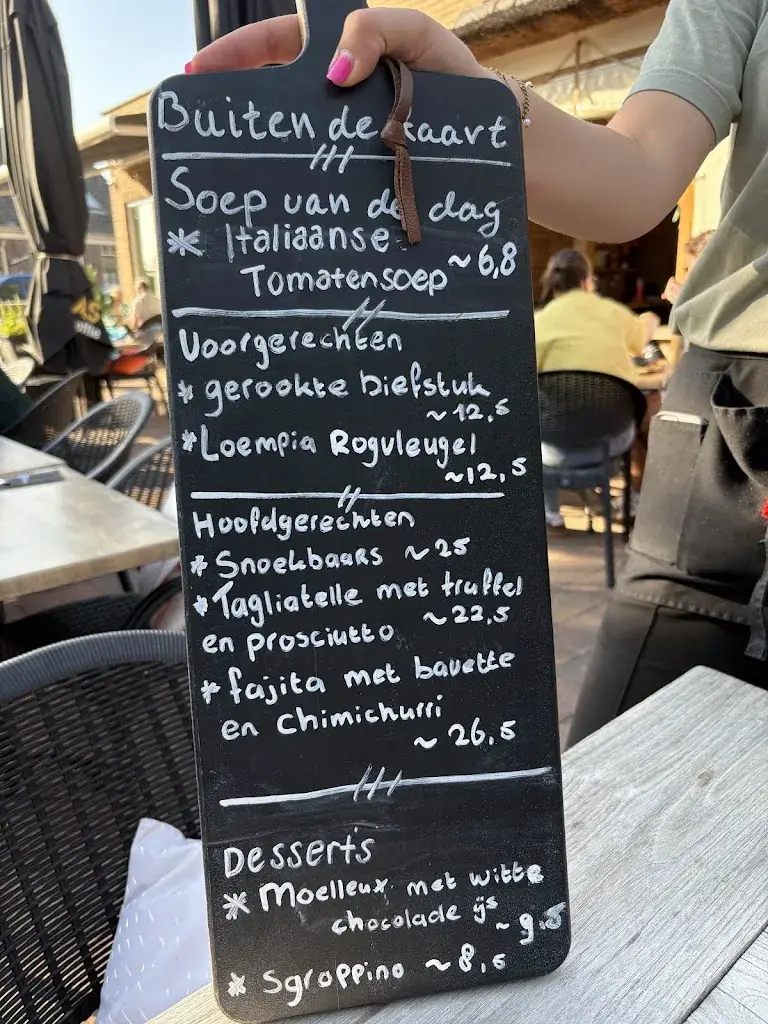 Buiten de kaart
Soep van de dag
* Italiaanse
Tomatensoep ~6,8
Voorgerechten
* gerookte biefstuk
~12,5
* Loempia Rogvleugel
~12,5
Hoofdgerechten
* Snoekbaars ~25
* Tagliatelle met truffel
en prosciutto ~22,5
* fajita met bavette
en Chimichurri
~26,5
Desserts
* Moelleux met witte
chocolade ijs
~9,5
* Sgroppino ~8,5